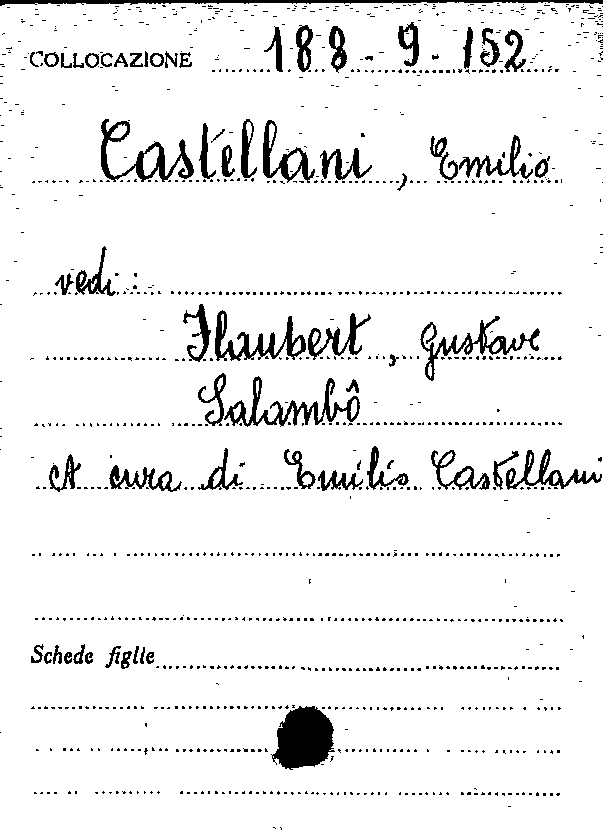 COLLOCAZIONE 188-9-152
Castellani, Emilio
vedi:
Flaubert, Gustave
Salambô
A cura di Emilio Castellani
Schede figlie